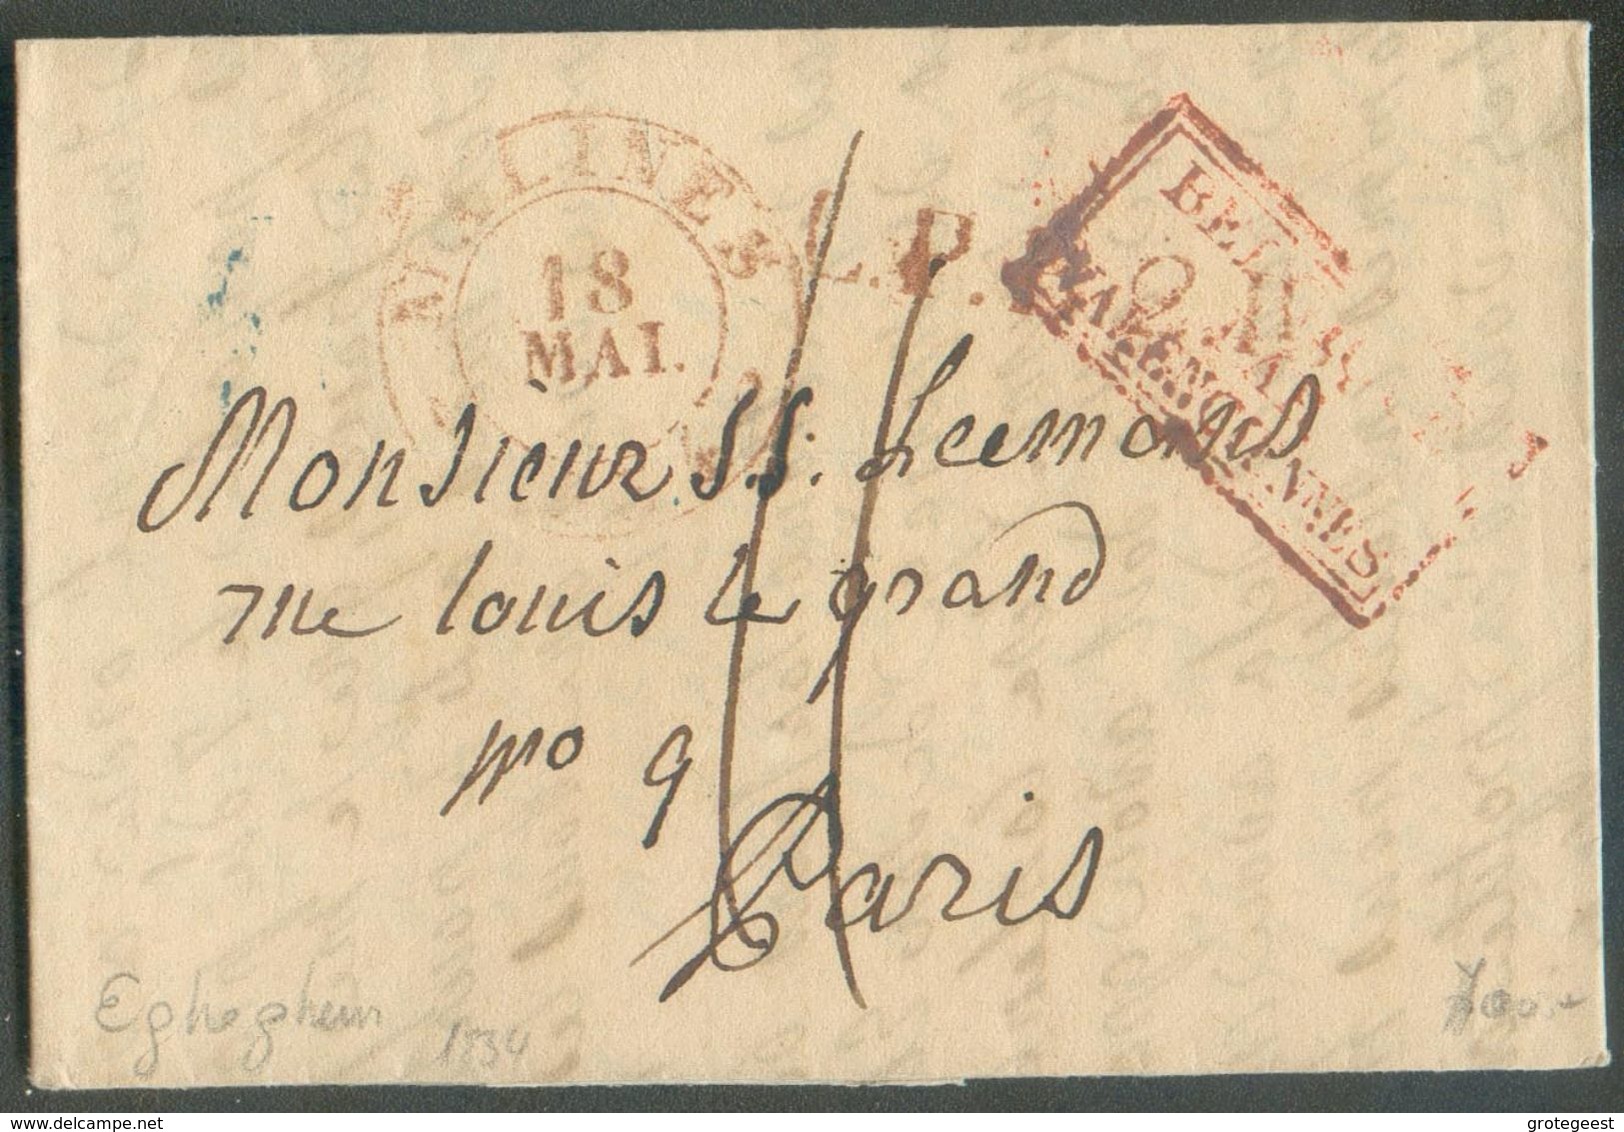 MALINES
18
MAI.
L.P.
BELG.
VALENCIENNES
Monsieur J.J. Leemans
rue louis le grand
no 9
Paris
Egheghem
1834
delcampe.net
grotegeest